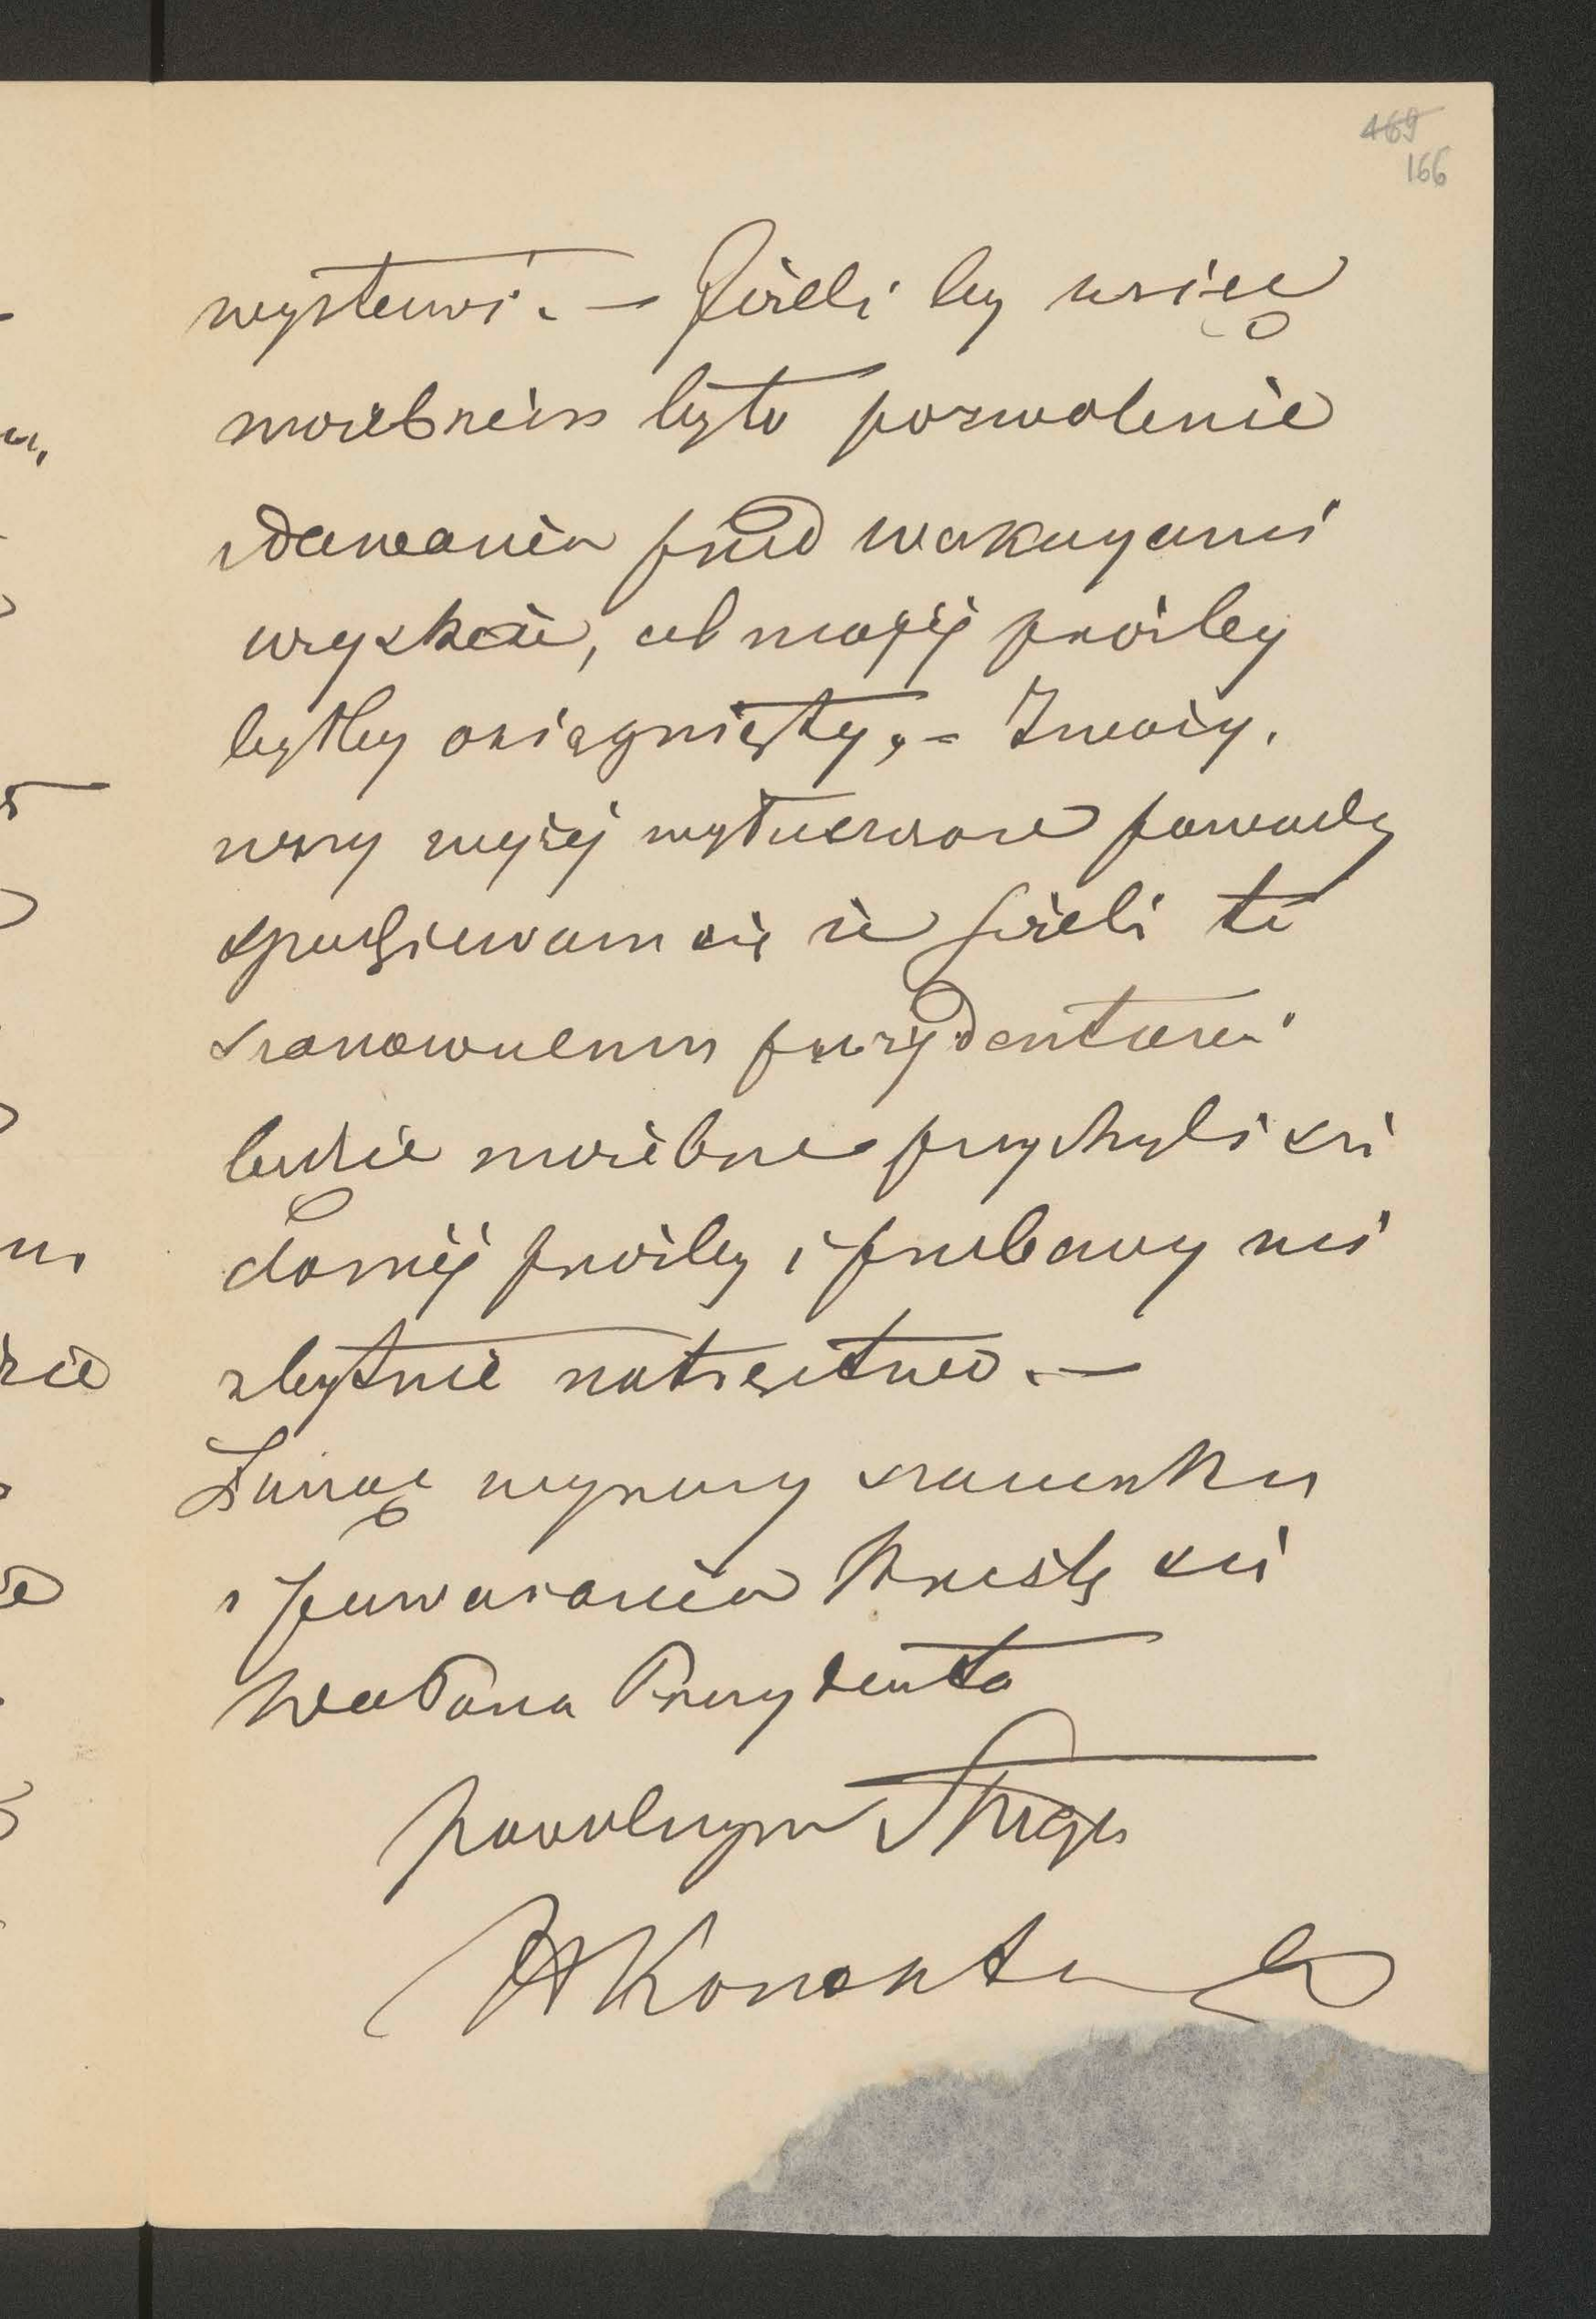 469
166
wystawi. — Jeżeli by więc
możebneim było pozwolenie
zdawania przed wakacyami
uzyskać, cel mojéj prośby
byłby osiągnięty. — Zważy-
wszy wyżéj wyłuszczone powody
spodziewam się że jeżeli to
szanownemu prezydentowi
będzie możebne przychyli się
do méj prośby i prze
zbytnie natrętne. —
Łącząc wyrazy szacunku
i poważania kreślę się
Wea Pana Prezydenta
powolnym Sługą